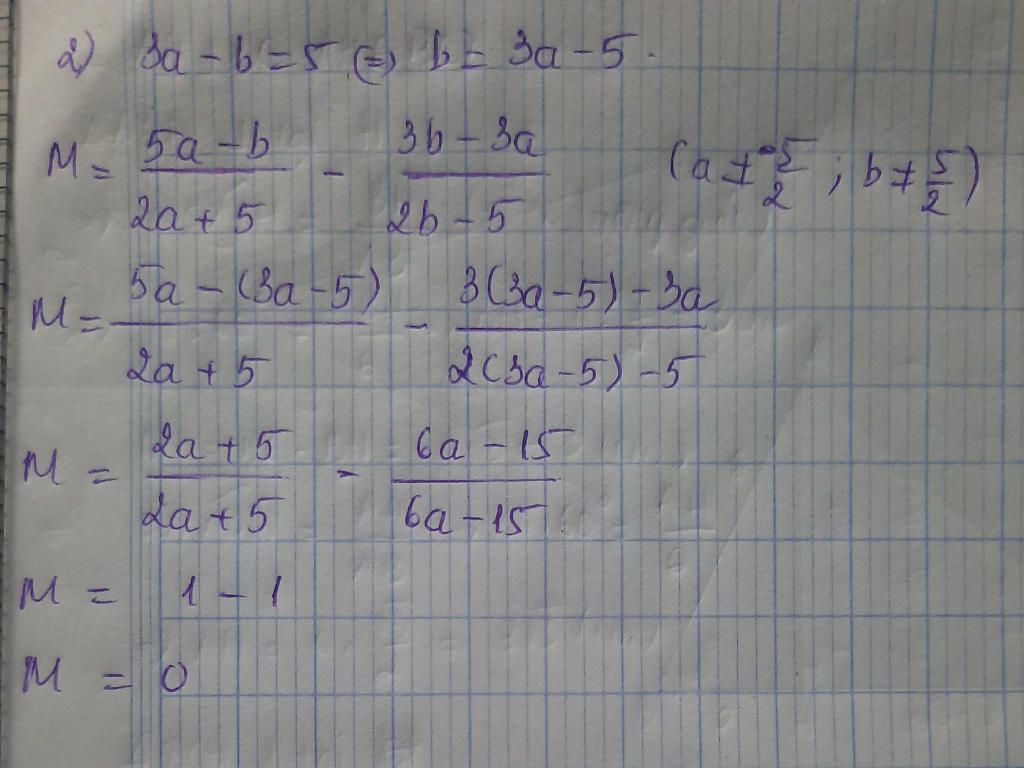 2) 3a - b = 5 (=) b = 3a - 5.
M = (5a - b)/(2a + 5) - (3b - 3a)/(2b - 5) (a ≠ -5/2 ; b ≠ 5/2)
M = (5a - (3a - 5))/(2a + 5) - (3(3a - 5) - 3a)/(2(3a - 5) - 5)
M = (2a + 5)/(2a + 5) - (6a - 15)/(6a - 15)
M = 1 - 1
M = 0